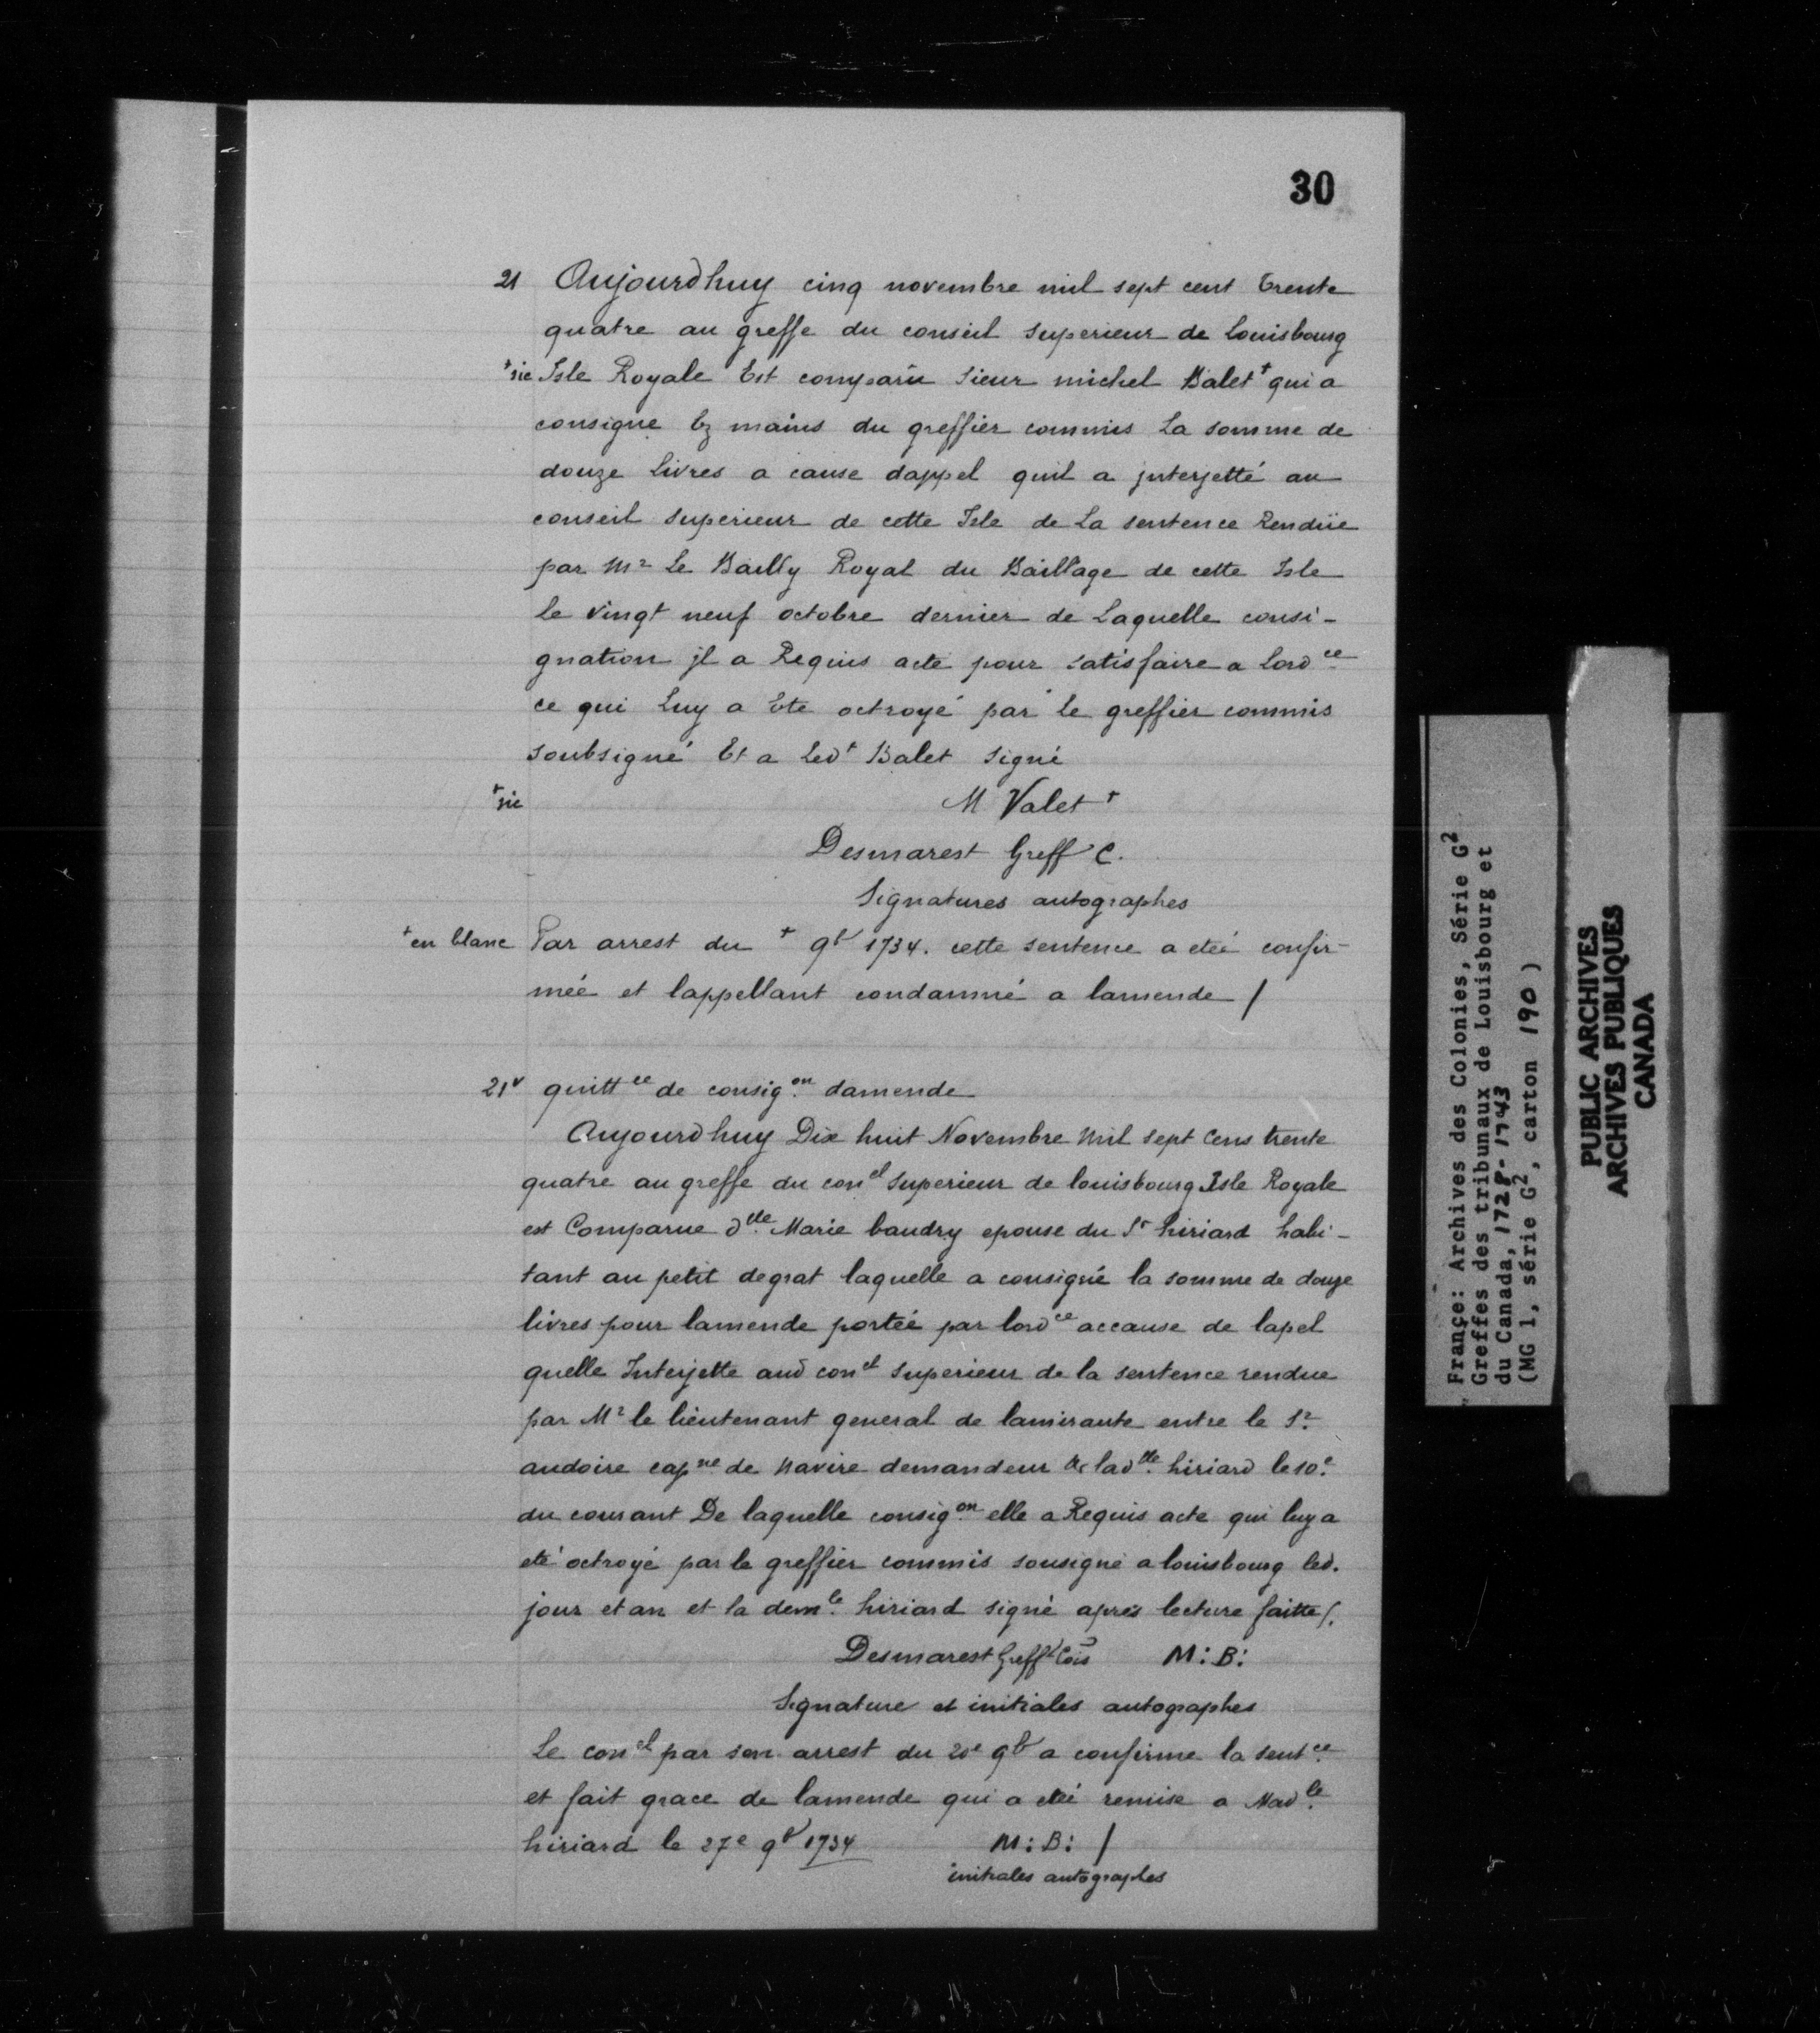 30
21 Aujourdhuy cinq novembre mil sept cent trente
quatre au greffe du conseil superieur de Louisbourg
+sic Isle Royale Est comparu Sieur michel Balet+ qui a
consigne Ez mains du greffier commis La somme de
douze livres a cause dappel quil a jnterjetté au
conseil superieur de cette Isle de La sentence Rendüe
par Mr Le Bailly Royal du Baillage de cette Isle
le vingt neuf octobre dernier de Laquelle consi-
gnation jl a Requis acte pour satisfaire a Lordce
ce qui Luy a Ete octroyé par le greffier commis
soubsigné Et a Ledt Balet signé
+sic M Valet+
Desmarest Greff C.
Signatures autographes
+en blanc Par arrest du + 9b 1734. cette sentence a eteé confir-
mée et lappellant condamné a lamende /
21v quittce de consigon damende
Aujourdhuy Dix huit Novembre mil sept Cens trente
quatre au greffe du conel superieur de louisbourg Isle Royale
est Comparue dlle Marie baudry epouse du Sr hiriard habi-
tant au petit degrat laquelle a consigné la somme de douze
livres pour lamende portée par lordce accause de lapel
quelle Interjette aud conel superieur de la sentence rendue
par Mr le lieutenant general de lamiraute entre le Sr
audoire capne de Navire demandeur & ladlle hiriard le 10e
du courant De laquelle consigon elle a Requis acte qui luy a
eté octroyé par le greffier commis sousigné a louisbourg led.
jour et an et la demle hiriard signé après lecture faitte /.
Desmarest Greff Cois M:B:
Signature et initiales autographes
Le conel par son arrest du 20e 9b a confirme la sentce
et fait grace de lamende qui a eté remise a Madle
hiriard le 27e 9b 1734 M:B: /
initiales autographes
France: Archives des Colonies, Série G2
Greffes des tribunaux de Louisbourg et
du Canada, 1728-1743
(MG 1, série G2, carton 190)
PUBLIC ARCHIVES
ARCHIVES PUBLIQUES
CANADA